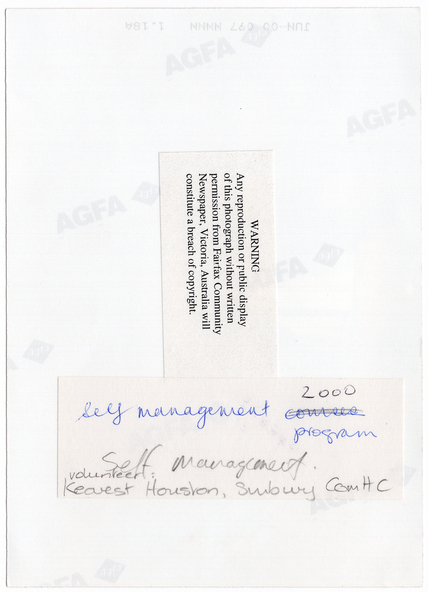 JUN 00 097 NNNN 1.18A
AGFA
AGFA
AGFA
AGFA
AGFA
AGFA
WARNING
Any reproduction or public display
of this photograph without written
permission from Fairfax Community
Newspaper, Victoria, Australia will
constitute a breach of copyright.
2000
self management
program
Self Management.
volunteer:
Houston, Sunbury ComHC